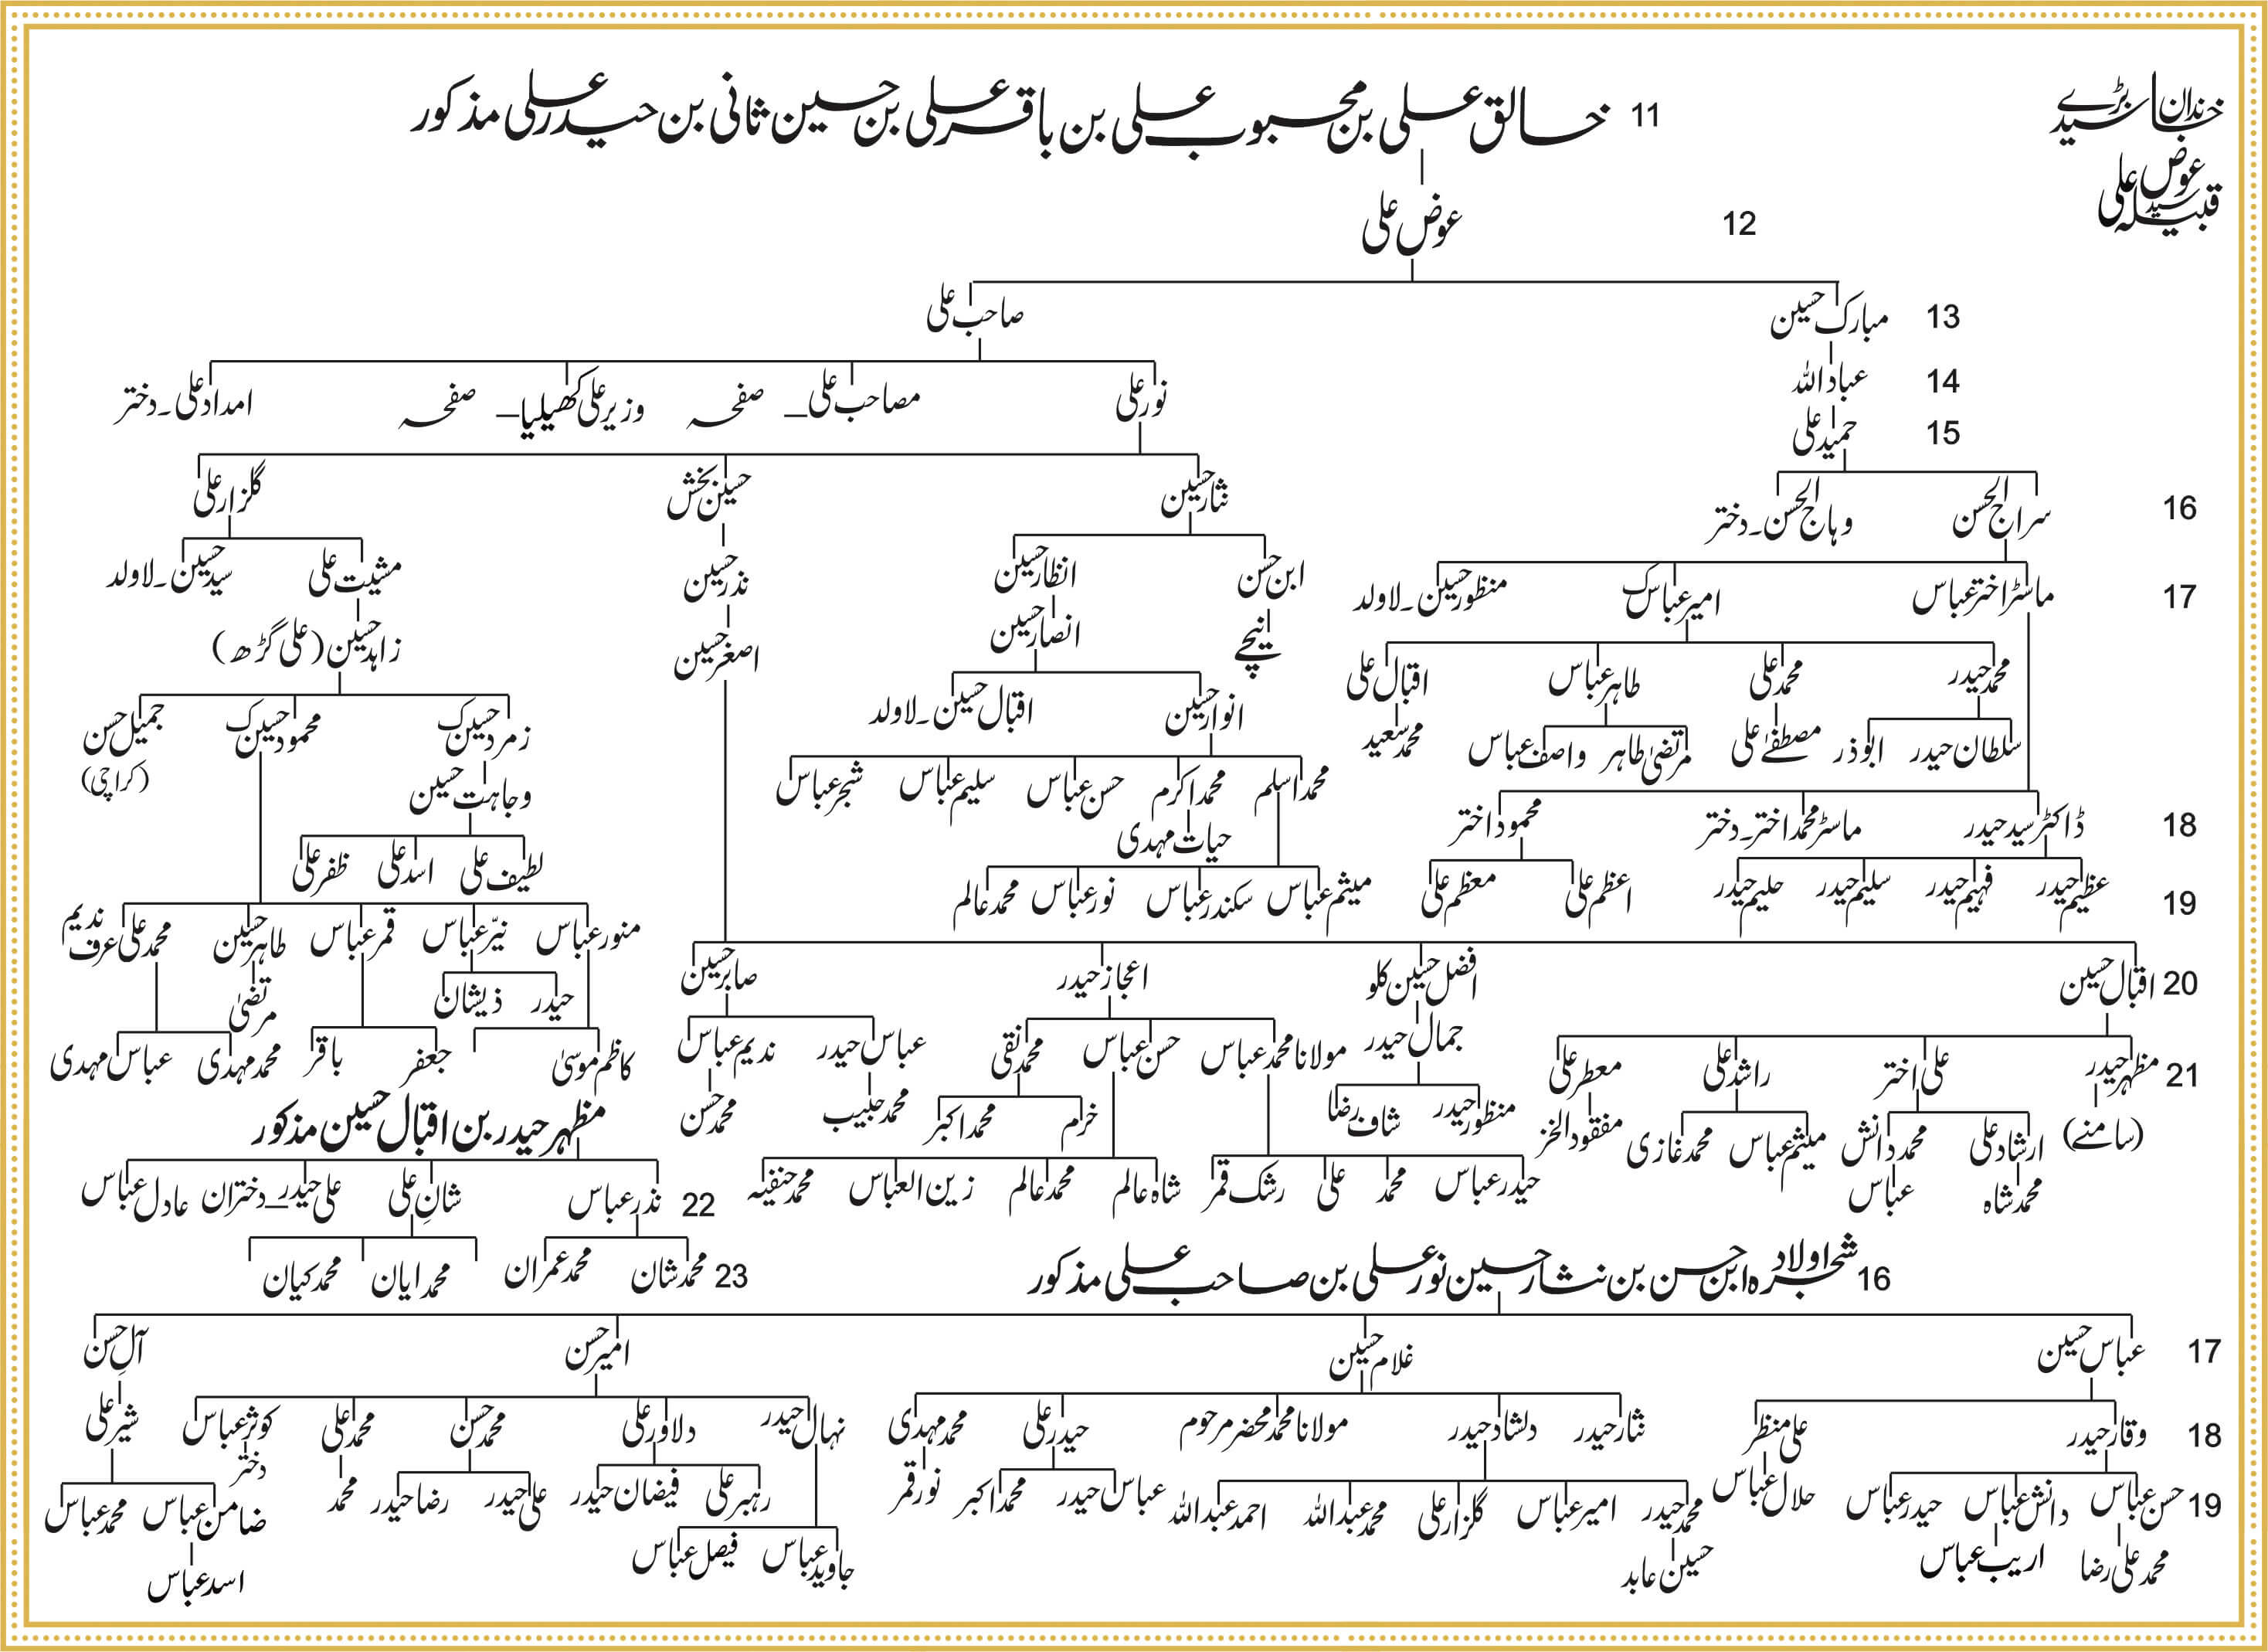 خاندان بڑے سید
عوض علی
قبیلہ سید
11 خالق علی بن محبوب علی بن باقر علی بن حسین ثانی بن حیدر علی مذکور
12 عوض علی
13 مبارک حسین صاحب علی
14 عباد اللہ نور علی مصاحب علی _ صفحہ وزیر علی کھیلیا _ صفحہ امداد علی۔دختر
15 حمید علی
16 سراج الحسن وہاج الحسن۔دختر نثار حسین حسین بخش گلزار علی
17 ماسٹر اختر عباس امیر عباس منظور حسین۔لاولد ابن حسن انظار حسین نذر حسین مشیت علی سید حسین۔لاولد
نیچے انصار حسین اصغر حسین زاہد حسین (علی گڑھ)
محمد حیدر محمد علی طاہر عباس اقبال علی انوار حسین اقبال حسین۔لاولد زمرد حسین محمود حسین جمیل حسن
(کراچی)
سلطان حیدر ابوذر مصطفےٰ علی مرتضیٰ طاہر واصف عباس محمد سعید محمد اسلم محمد اکرم حسن عباس سلیم عباس شجر عباس وجاہت حسین
18 ڈاکٹر سید حیدر ماسٹر محمد اختر۔دختر محمود اختر حیات مہدی لطیف علی اسد علی ظفر علی
19 عظیم حیدر فہیم حیدر سلیم حیدر حلیم حیدر اعظم علی معظم علی میثم عباس سکندر عباس نور عباس محمد عالم
منور عباس نیّر عباس قمر عباس طاہر حسین محمد علی عرف ندیم
20 اقبال حسین افضل حسین کلو اعجاز حیدر صابر حسین حیدر ذیشان مرتضیٰ
21 مظہر حیدر علی اختر راشد علی معطر علی جمال حیدر مولانا محمد عباس حسن عباس محمد نقی عباس حیدر ندیم عباس کاظم موسیٰ جعفر باقر محمد مہدی عباس مہدی
(سامنے) ارشاد علی محمد دانش میثم عباس محمد غازی مفقود الخز منظور حیدر شاف رضا خرم محمد اکبر محمد حبیب محمد حسن
محمد شاہ عباس حیدر عباس محمد علی رشک قمر شاہ عالم محمد عالم زین العباس محمد حنفیہ
مظہر حیدر بن اقبال حسین مذکور
22 نذر عباس شانِ علی علی حیدر _ دختران عادل عباس
23 محمد شان محمد عمران محمد ایان محمد کیان
16 شجرہ اولاد ابن حسن بن نثار حسین نور علی بن صاحب علی مذکور
17 عباس حسین غلام حسین امیر حسن آلِ حسن
18 وقار حیدر علی منظر نثار حیدر دلشاد حیدر مولانا محمد محضر مرحوم حیدر علی محمد مہدی نہال حیدر دلاور علی محمد حسن محمد علی کوثر عباس شیر علی
دختر
19 حسن عباس دانش عباس حیدر عباس حلال عباس محمد حیدر امیر عباس گلزار علی محمد عبداللہ احمد عبداللہ عباس حیدر محمد اکبر نور قمر رہبر علی فیضان حیدر علی حیدر رضا حیدر محمد ضامن عباس محمد عباس
محمد علی رضا اریب عباس حسین عابد جاوید عباس فیصل عباس اسد عباس